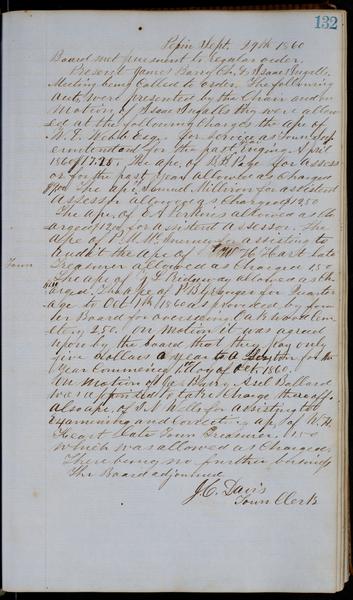 132
Pepin Sept. 29th 1860
Board met pursuant to regular order.
Present James Barry Ch, & Isaac Ingalls
Meeting being called to order. The following
accts were presented by the Chair and on
motion of Isaac Ingalls they were allow
ed at the following charges the apc of
W. F. Webb Esqr. for service as Town Sup
erintendent for the past year ending April
1860 17.25. The apc. of B. F. Page for assess
or for the past year allowed as Charged
The apc. Samuel Milliron for assistent
assessor allowed as Charged 12 50
The apc. of E. Perkins allowed as Ch
arged for assistent Assessor. The
apc of M. W. for assisting to
audit the apc of W H. Hart Late
Town
Treasurer allowed as Charged 1 50
The apc of Ridgway allowed as Ch
arged. The apc of for Quarter
age to Oct 1th 1860 as provided by for
mer Board for overseeing Oakwood Cem
etery 2 50. On motion it was agreed
upon by the board that they pay only
five dollars a year to a Sexton for the
Year Commencing 1st day of Oct 1860.
On motion of Jas Barry Asel Ballard
was appointed to take Charge thereoff.
Also apc. of S. N. Wells for assisting to
examining and correcting apc of W. H.
Heart Late Town Treasurer. 1 50
which was allowed as Charged
There being no further business
The Board adjourned
J. C. Davis
Town Clerk